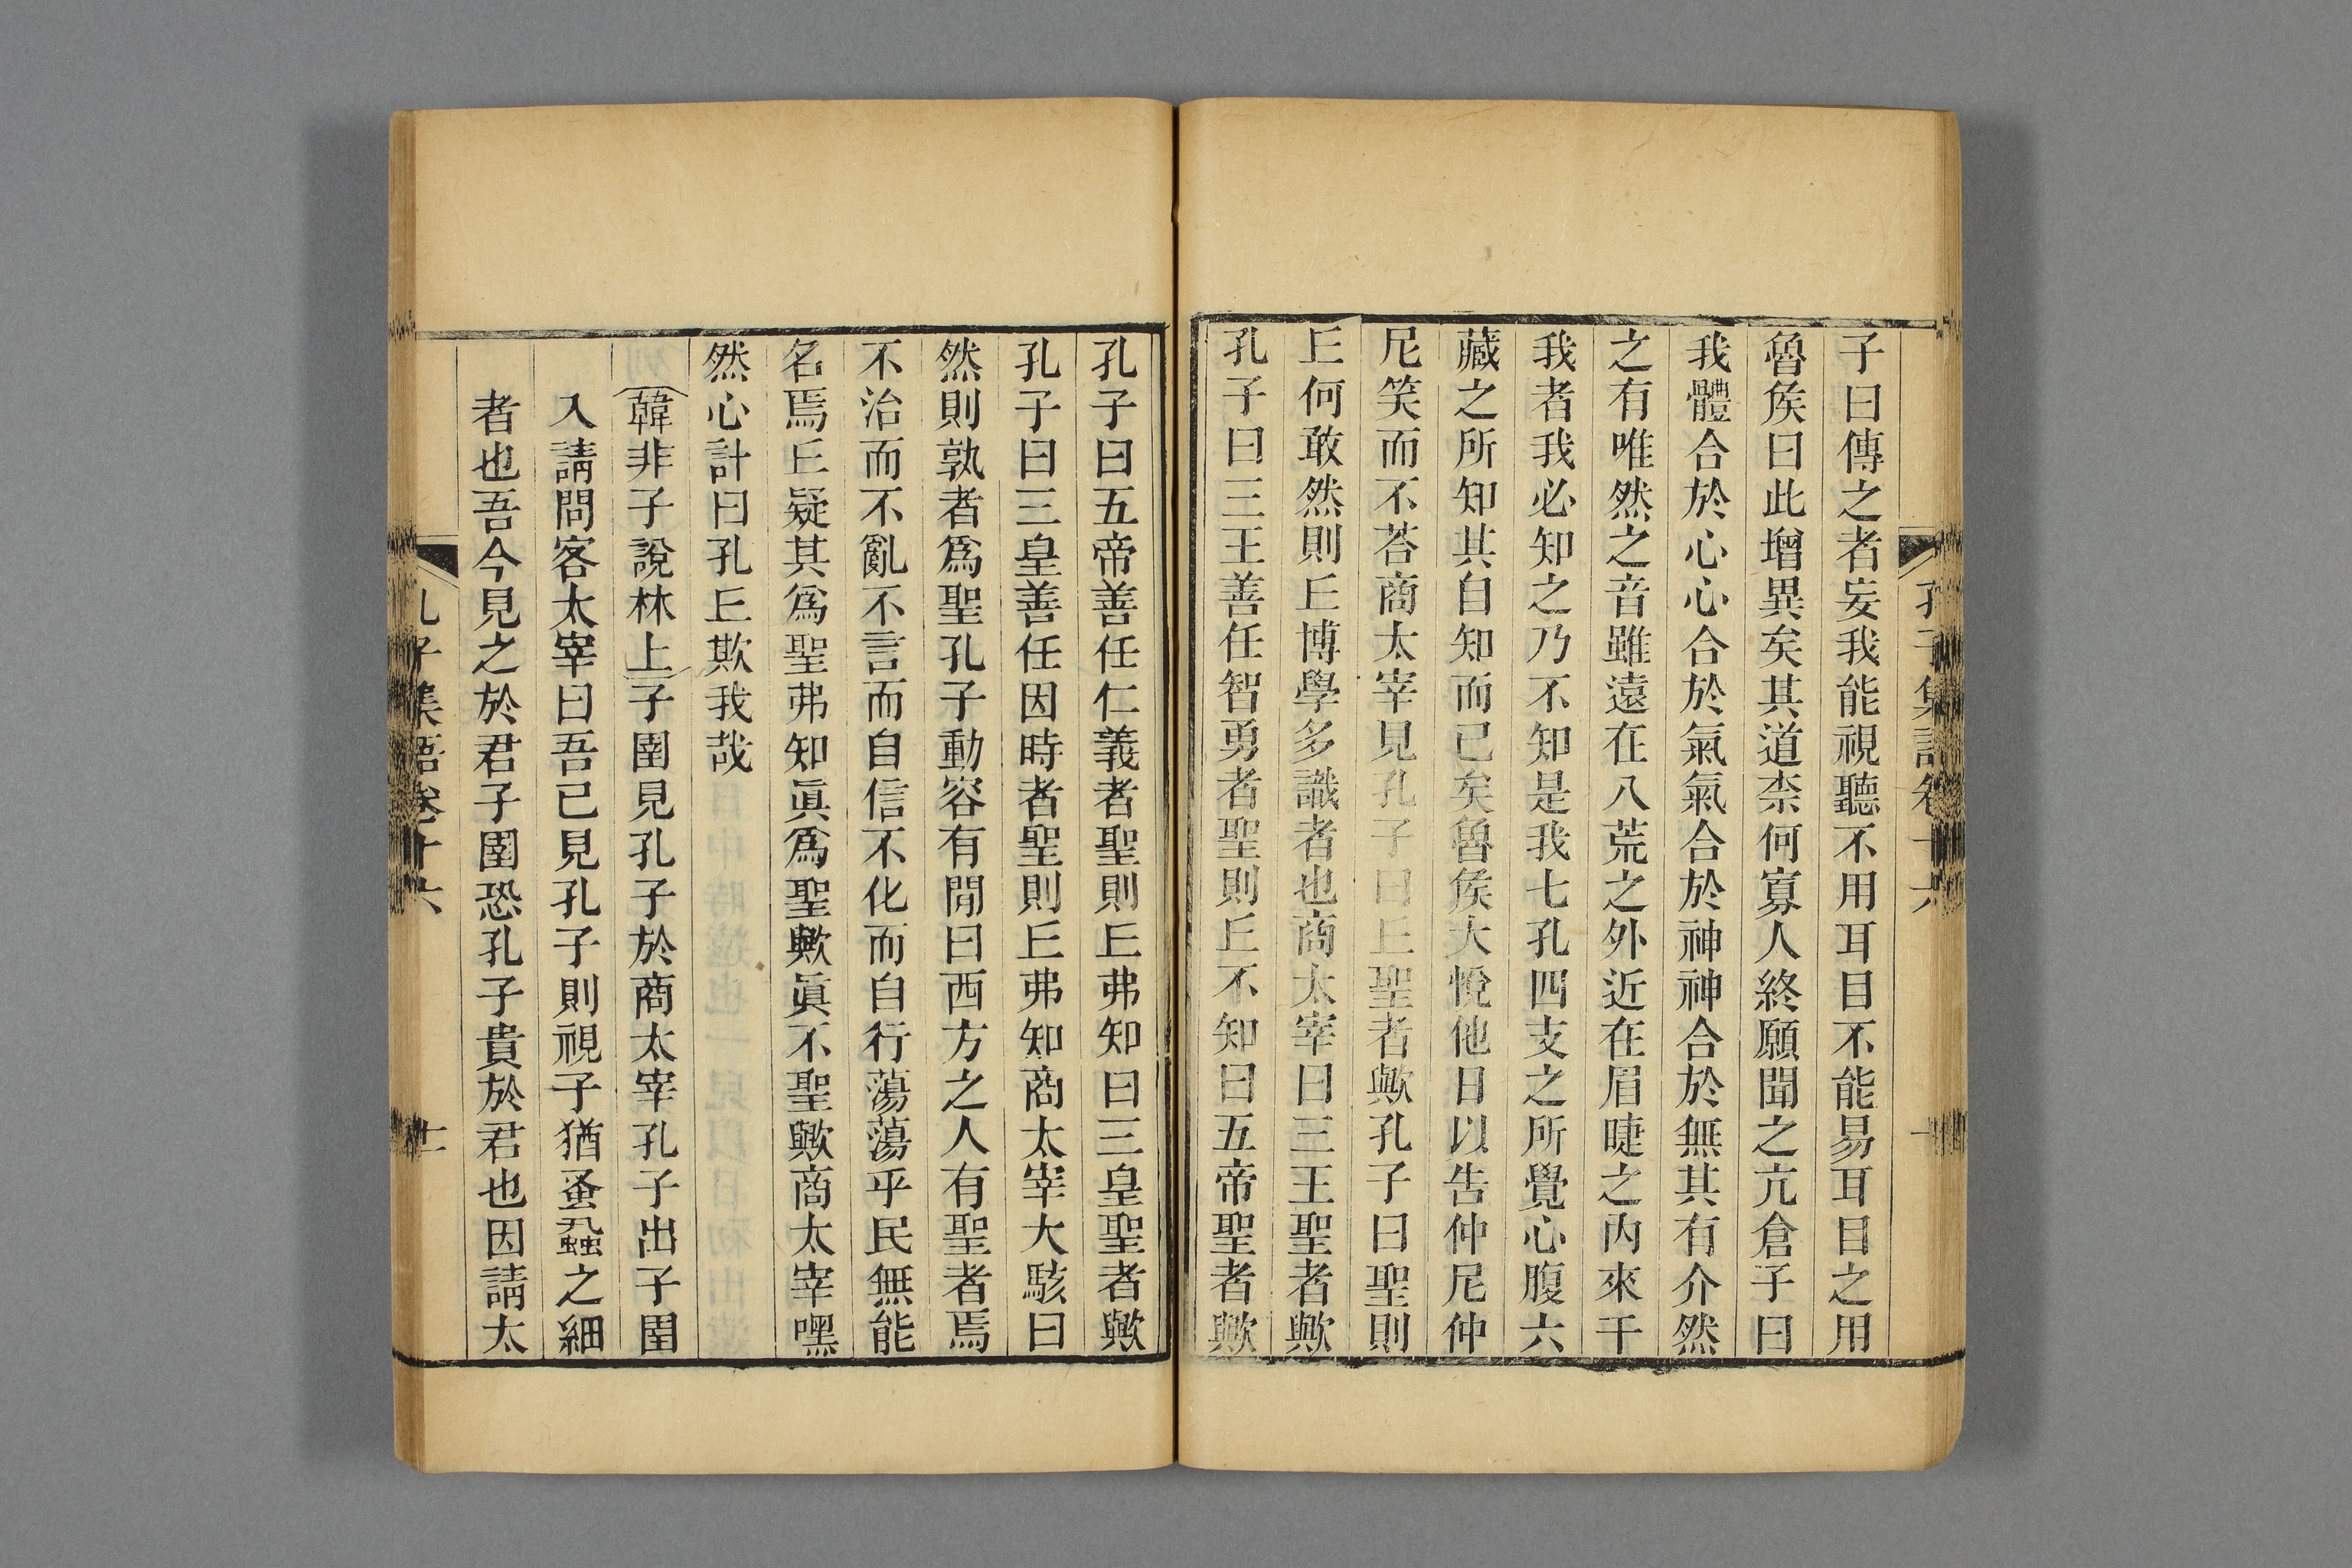 孔子集語卷十六
子曰傳之者妄我能視聽不用耳目不能易耳目之用
魯矦曰此增異矣其道柰何寡人終願聞之亢倉子曰
我體合於心心合於氣氣合於神神合於無其有介然
之有唯然之音雖遠在八荒之外近在眉睫之內來干
我者我必知之乃不知是我七孔四支之所覺心腹六
藏之所知其自知而已矣魯矦大悅他日以告仲尼仲
尼笑而不荅商太宰見孔子曰丘聖者歟孔子曰聖則
丘何敢然則丘博學多識者也商太宰曰三王聖者歟
孔子曰三王善任智勇者聖則丘不知曰五帝聖者歟
孔子曰五帝善任仁義者聖則丘弗知曰三皇聖者歟
孔子曰三皇善任因時者聖則丘弗知商太宰大駭曰
然則孰者爲聖孔子動容有閒曰西方之人有聖者焉
不治而不亂不言而自信不化而自行蕩蕩乎民無能
名焉丘疑其爲聖弗知眞爲聖歟眞不聖歟商太宰嘿
然心計曰孔丘欺我哉
韓非子說林上子圉見孔子於商太宰孔子出子圉
入請問客太宰曰吾已見孔子則視子猶蚤蝨之細
者也吾今見之於君子圉恐孔子貴於君也因請太
孔子集語卷十六
十一